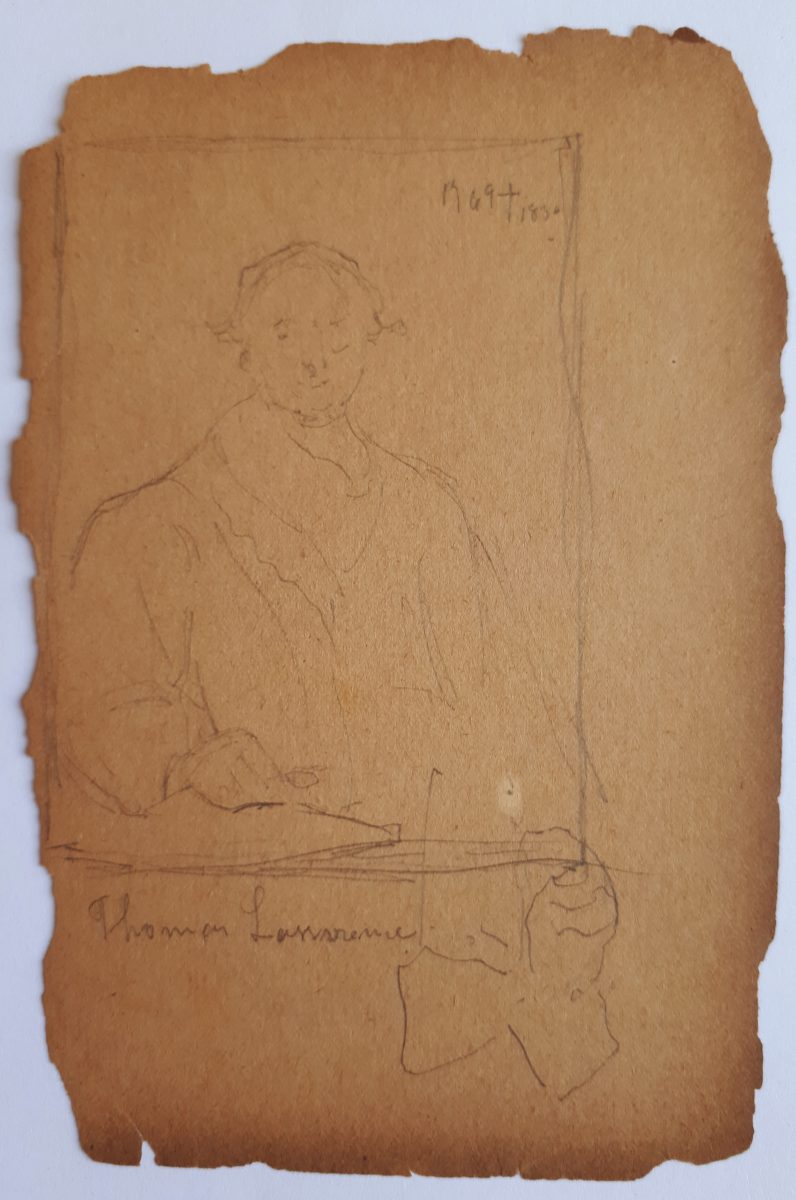 69 † 1830
Thomas Lawrence